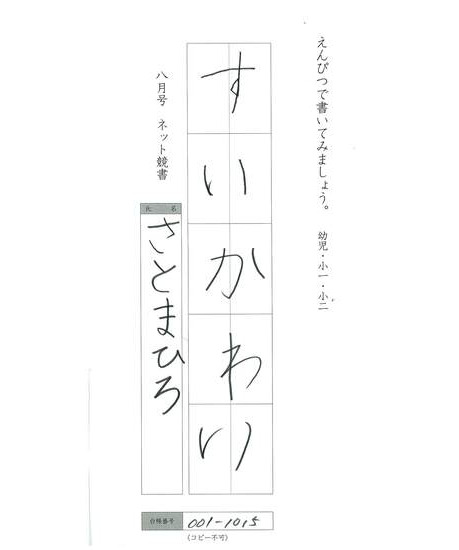 えんぴつで書いてみましょう。 幼児・小一・小二
すいかわり
八月号 ネット競書
氏 名
さとまひろ
会員番号 001-1015
(コピー不可)